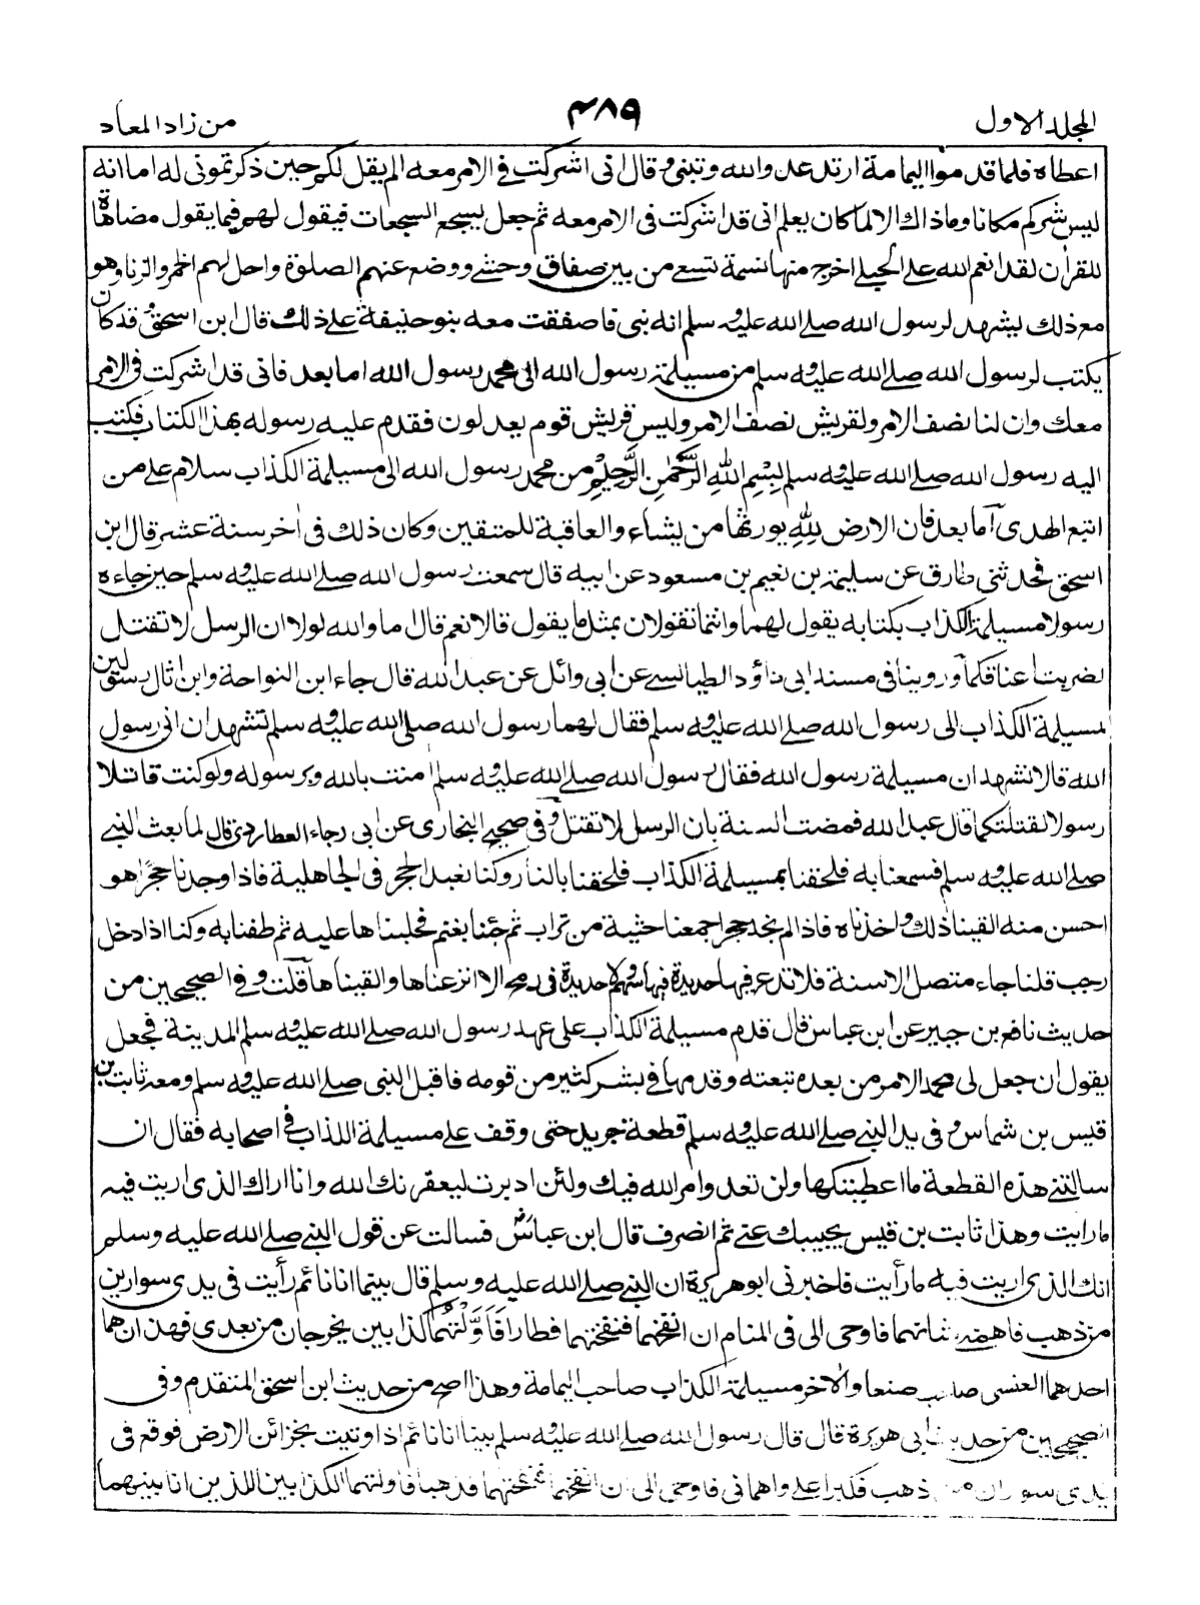 المجلد الاول
٤٨٩
من زاد المعاد
اعطاه فلما قدموا اليمامة ارتد عدو الله وتبنى وقال انى اشركت فى الامر معه الم يقل لكم حين ذكرتمونى له اما انه
ليس بشركم مكانا وما ذاك الا لما كان يعلم انى قد اشركت فى الامر معه ثم جعل يسجع السجعات فيقول لهم فيما يقول مضاهاة
للقرأن لقد انعم الله على الحبلى اخرج منها نسمة تسعى من بين صفاق وحشى ووضع عنهم الصلوة واحل لهم الخمر والزنا وهو
مع ذلك يشهد لرسول الله صلى الله عليه وسلم انه نبى فاصفقت معه بنو حنيفة على ذلك قال ابن اسحق وقد كان
يكتب لرسول الله صلى الله عليه وسلم من مسيلمة رسول الله الى محمد رسول الله اما بعد فانى قد اشركت فى الامر
معك وان لنا نصف الامر ولقريش نصف الامر وليس قريش قوم يعدلون فقدم عليه رسوله بهذا الكتاب فكتب
اليه رسول الله صلى الله عليه وسلم بِسْمِ اللهِ الرَّحْمٰنِ الرَّحِيْمِ من محمد رسول الله الى مسيلمة الكذاب سلام على من
اتبع الهدى اما بعد فان الارض لِلّٰهِ يورثها من يشاء والعاقبة للمتقين وكان ذلك فى أخر سنة عشر قال ابن
اسحق فحدثنى طارق عن سليمة بن نعيم بن مسعود عن ابيه قال سمعت رسول الله صلى الله عليه وسلم حين جاءه
رسولا مسيلمة الكذاب بكتابه يقول لهما وانتما تقولان بمثل ما يقول قالا نعم قال اما والله لولا ان الرسل لا تقتل
لضربت اعناقكما وروينا فى مسند ابى داؤد الطيالسى عن ابى وائل عن عبد الله قال جاء ابن النواحة وابن اثال رسولين
لمسيلمة الكذاب الى رسول الله صلى الله عليه وسلم فقال لهما رسول الله صلى الله عليه وسلم تشهدان انى رسول
الله قالا نشهد ان مسيلمة رسول الله فقال رسول الله صلى الله عليه وسلم امنت بالله وبرسوله ولو كنت قاتلا
رسولا لقتلتكما قال عبد الله فمضت السنة بان الرسل لا تقتل وفى صحيح البخارى عن ابى رجاء العطاردى قال لما بعث النبى
صلى الله عليه وسلم فسمعنا به فلحقنا بمسيلمة الكذاب فلحقنا بالنار وكنا نعبد الحجر فى الجاهلية فاذا وجدنا حجرًا هو
احسن منه القينا ذلك واخذناه فاذا لم نجد حجرا جمعنا حثية من تراب ثم جئنا بغنم فحلبناها عليه ثم طفنا به وكنا اذا دخل
رجب قلنا جاء متصل الاسنة فلا ندع رمحا فيها حديدة ولا سهم حديدة فى رجب الا انزعناها والقيناها قلت وفى الصحيحين من
حديث نافع بن جبير عن ابن عباس قال قدم مسيلمة الكذاب على عهد رسول الله صلى الله عليه وسلم المدينة فجعل
يقول ان جعل لى محمد الامر من بعده تبعته وقدمها فى بشر كثير من قومه فاقبل النبى صلى الله عليه وسلم ومعه ثابت بن
قيس بن شماس وفى يد النبى صلى الله عليه وسلم قطعة جريد حتى وقف على مسيلمة الكذاب فى اصحابه فقال ان
سالتنى هذه القطعة ما اعطيتكها ولن تعدو امر الله فيك ولئن ادبرت ليعقرنك الله وانا اراك الذى اريت فيه
ما رايت وهذا ثابت بن قيس يجيبك عنى ثم انصرف قال ابن عباس فسالت عن قول النبى صلى الله عليه وسلم
انك الذى اريت فيه ما رأيت فاخبرنى ابو هريرة ان النبى صلى الله عليه وسلم قال بينما انا نائم رأيت فى يدى سوارين
من ذهب فاهمنى شانهما فاوحى الى فى المنام ان انفخهما فنفختهما فطارا فَاَوَّلْتُهُمَا كذابين يخرجان من بعدى فهذان هما
احدهما العنسى صاحب صنعا والأخر مسيلمة الكذاب صاحب اليمامة وهذا اصح من حديث ابن اسحق المتقدم وفى
الصحيحين من حديث ابى هريرة قال قال رسول الله صلى الله عليه وسلم بينا انا نائم اذ اوتيت بخزائن الارض فوقع فى
يدى سواران من ذهب فكبرا على واهمانى فاوحى الى ان انفخهما فنفختهما فذهبا فاولتهما الكذابين اللذين انا بينهما